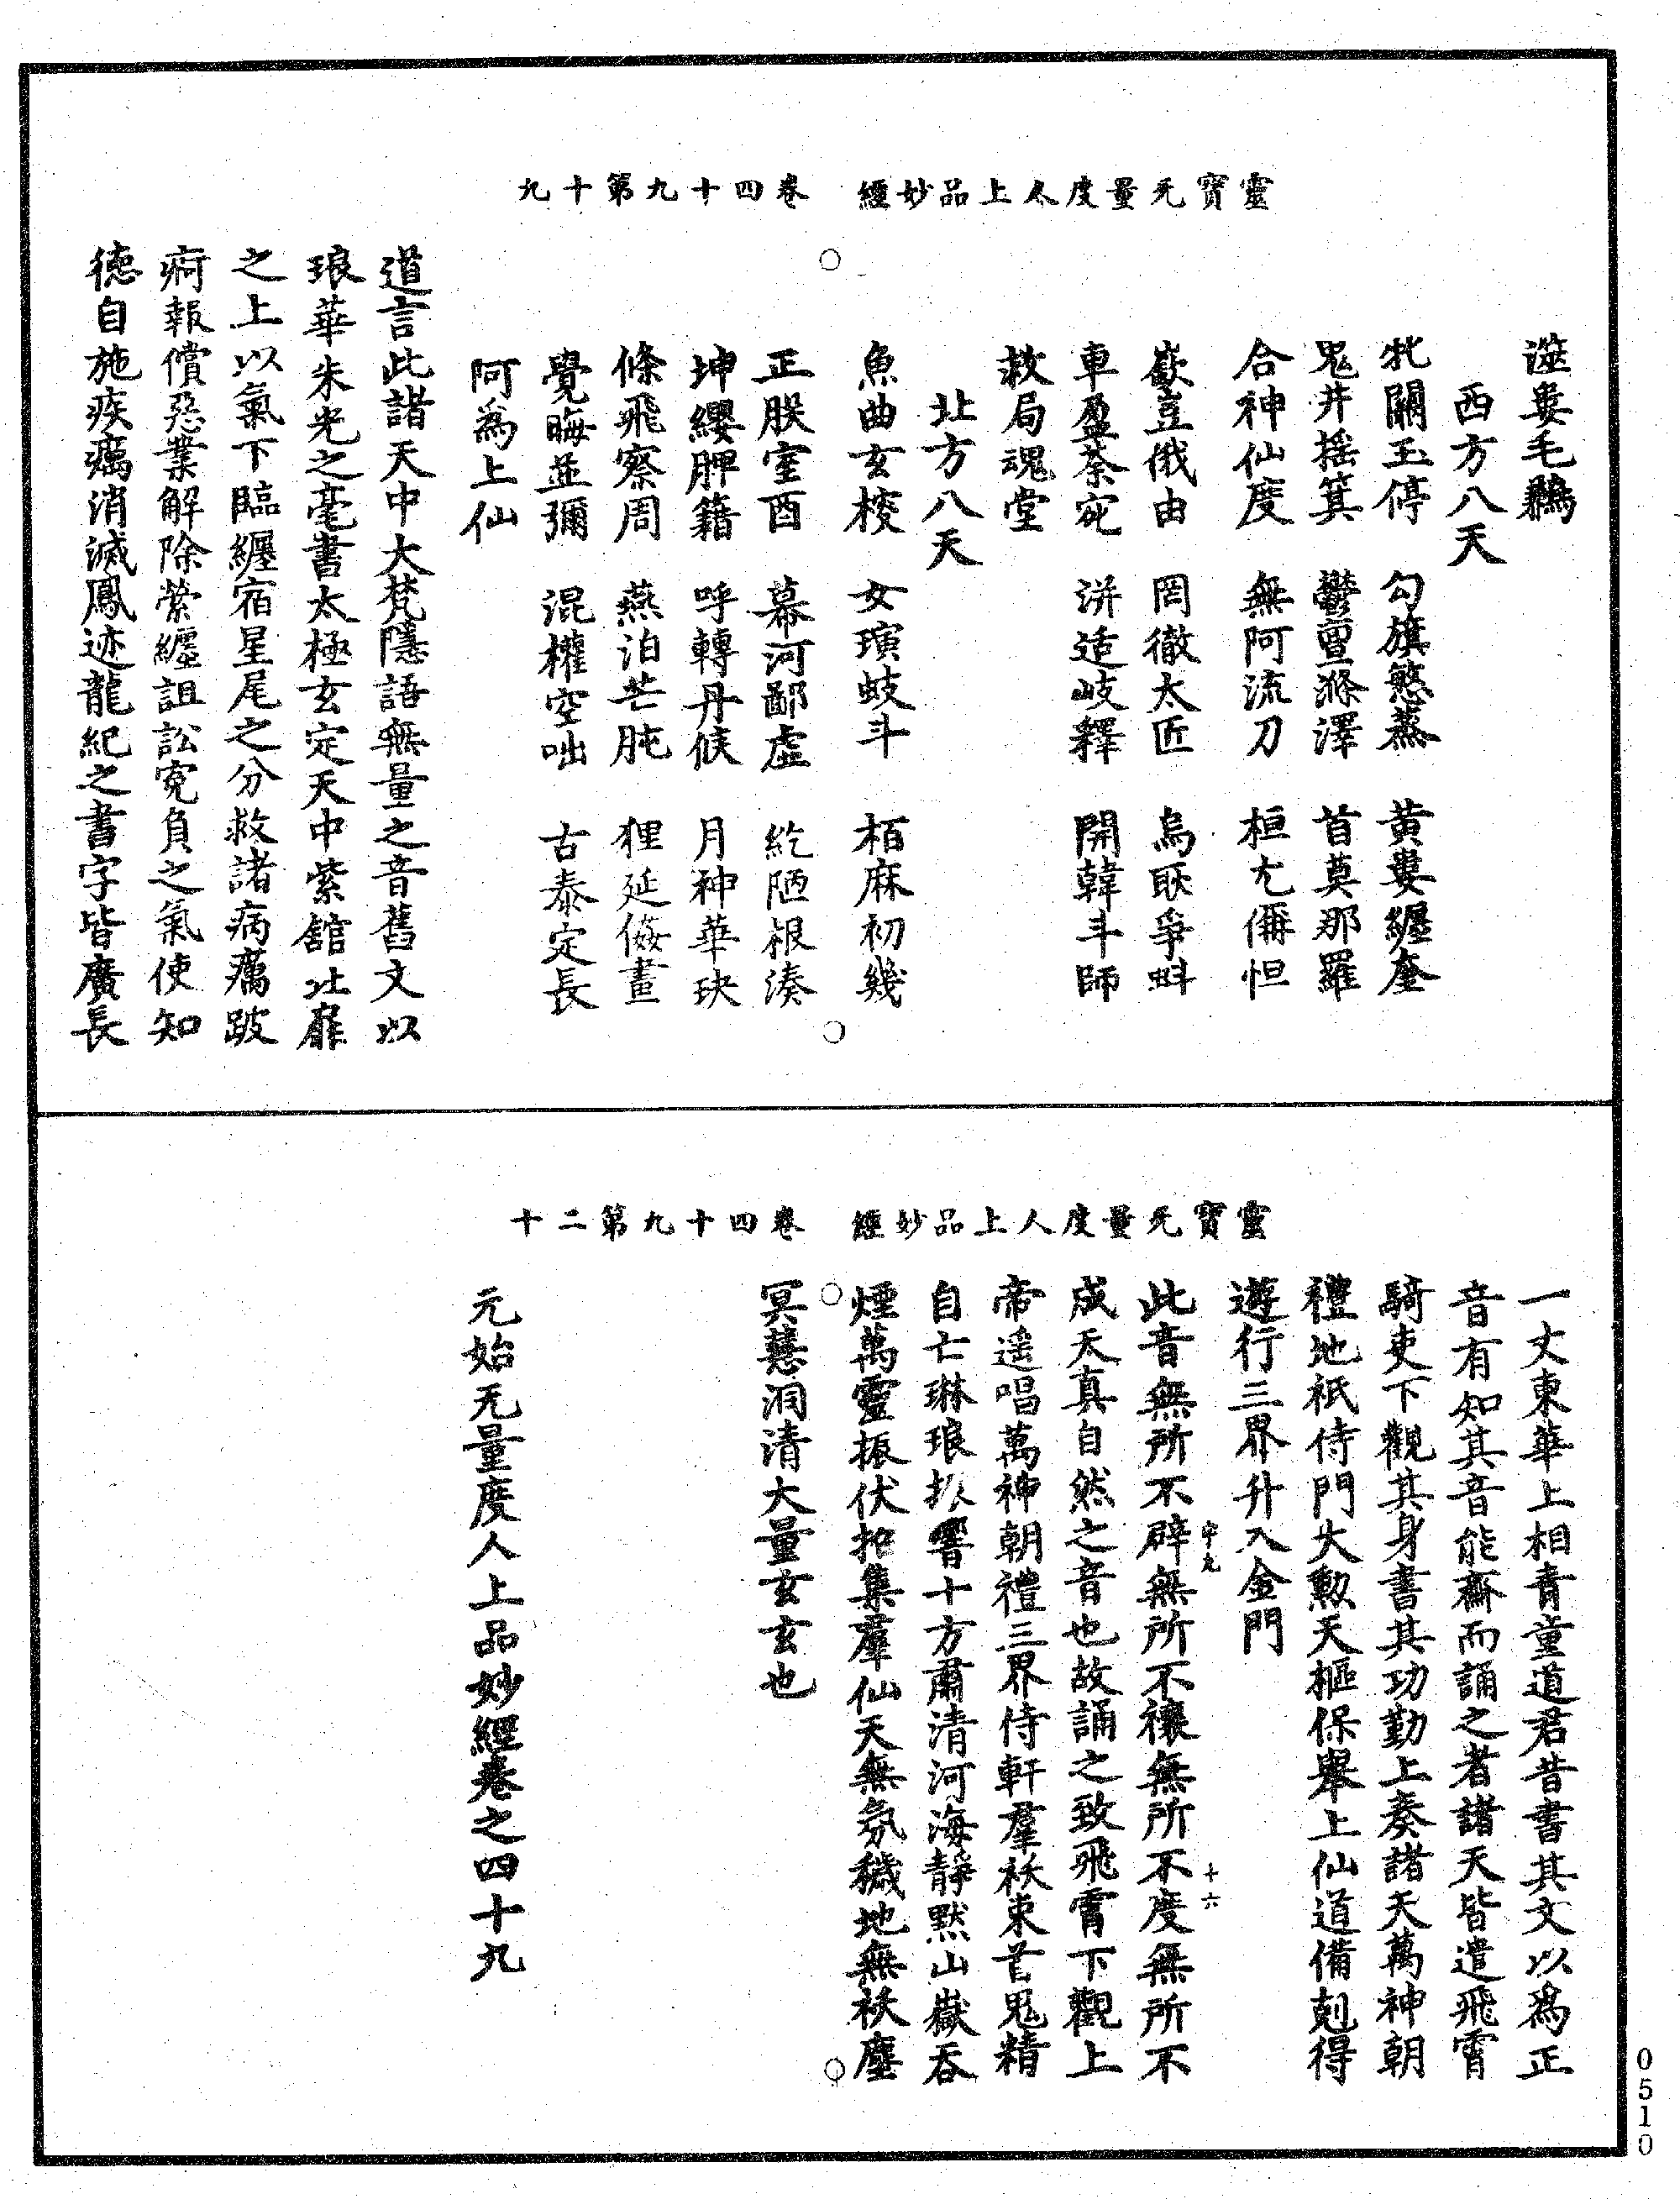 靈寶无量度人上品妙經　卷四十九第十九
遊婁毛鵜
西方八天
牝關玉停　勾旗慜蒸　黄婁纏奎
鬼井摇箕　鬱亶滌澤　首莫那羅
合神仙度　無阿流刀　桓尢儞怛
嶽豈俄由　罔徹太匠　烏耿爭蚪
車盈荼宛　洴适岐釋　開韓斗師
救局魂堂
北方八天
魚曲玄梭　女璌蚑斗　栢麻初幾
正朘室酉　幕河鄙虛　紇陋根湊
坤纓胛籍　呼轉丹候　月神華玦
條飛察周　燕泊芒肫　狸延偹畫
覺晦並彌　混權空咄　古泰定長
阿為上仙
道言此諸天中大梵隱語無量之音舊文以
琅華朱光之毫書太極玄定天中紫舘北扉
之上以氣下臨纏宿星尾之分救諸病癘跛
痾報償惡業解除縈纏詛訟寃負之氣使知
德自施疾癘消滅鳳迹龍紀之書字皆廣長
靈寶无量度人上品妙經　卷四十九第二十
一丈東華上相青童道君昔書其文以爲正
音有知其音能齋而誦之者諸天皆遣飛霄
騎吏下觀其身書其功勤上奏諸天萬神朝
禮地祇侍門大勲天樞保舉上仙道備剋得
遊行三界升入金門
此音無所不辟無所不禳無所不度無所不
成天真自然之音也故誦之致飛霄下觀上
帝遥唱萬神朝禮三界侍軒羣袄束首鬼精
自亡琳琅扒響十方肅清河海靜默山嶽吞
煙萬靈振伏招集羣仙天無氛穢地無袄塵
冥慧洞清大量玄玄也
元始无量度人上品妙經卷之四十九
十六
0510